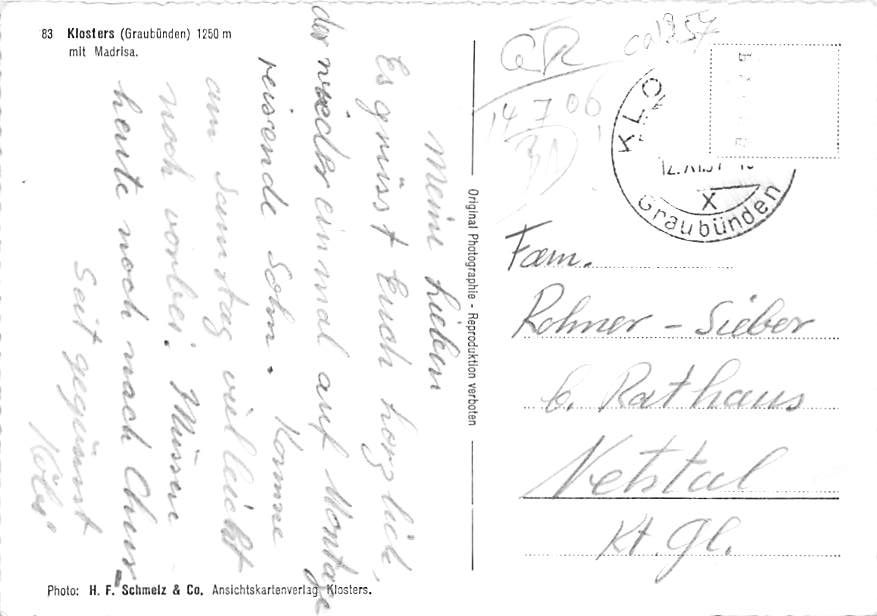 83 Klosters (Graubünden) 1250 m
mit Madrisa.
Meine Lieben
Es grüsst Euch herzlich,
der wieder einmal auf Montage
reisende Sohn. Komme
am Samstag vielleicht
noch vorbei. Müssen
heute noch nach Chur.
Seit gegrüsst
Original Photographie - Reproduktion verboten
ca 1957
14 7 06
KLO
Graubünden
X
Fam.
Rohner - Sieber
b. Rathaus
Netstal
Kt. Gl.
Photo: H. F. Schmelz & Co. Ansichtskartenverlag Klosters.